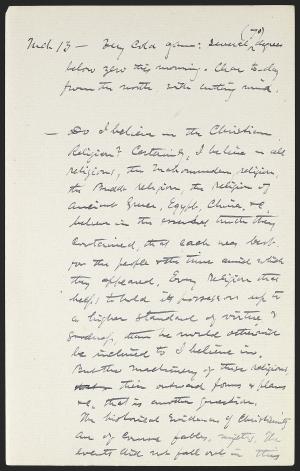 (7°)
Mch 13 — Very cold again: several degrees
below zero this morning. Clear to-day
from the north with cutting wind.
— Do I believe in the Christian
Religion? Certainly, I believe in all
religions, the Mohammedan religion,
the Buddh religion, the religion of
ancient Greece, Egypt, China, &c. I
believe in the essential truth they
contained, that each was best
for the people & the time amid which
they appeared. Every religion that
helps to hold its possessor up to
a higher standard of virtue &
goodness, than he would otherwise
be inclined to I believe in.
But the machinery of these religions,
their outward forms & plans
&c, that is another question.
The historical evidences of Christianity
are of course fables, myths. The
events did not fall out in this